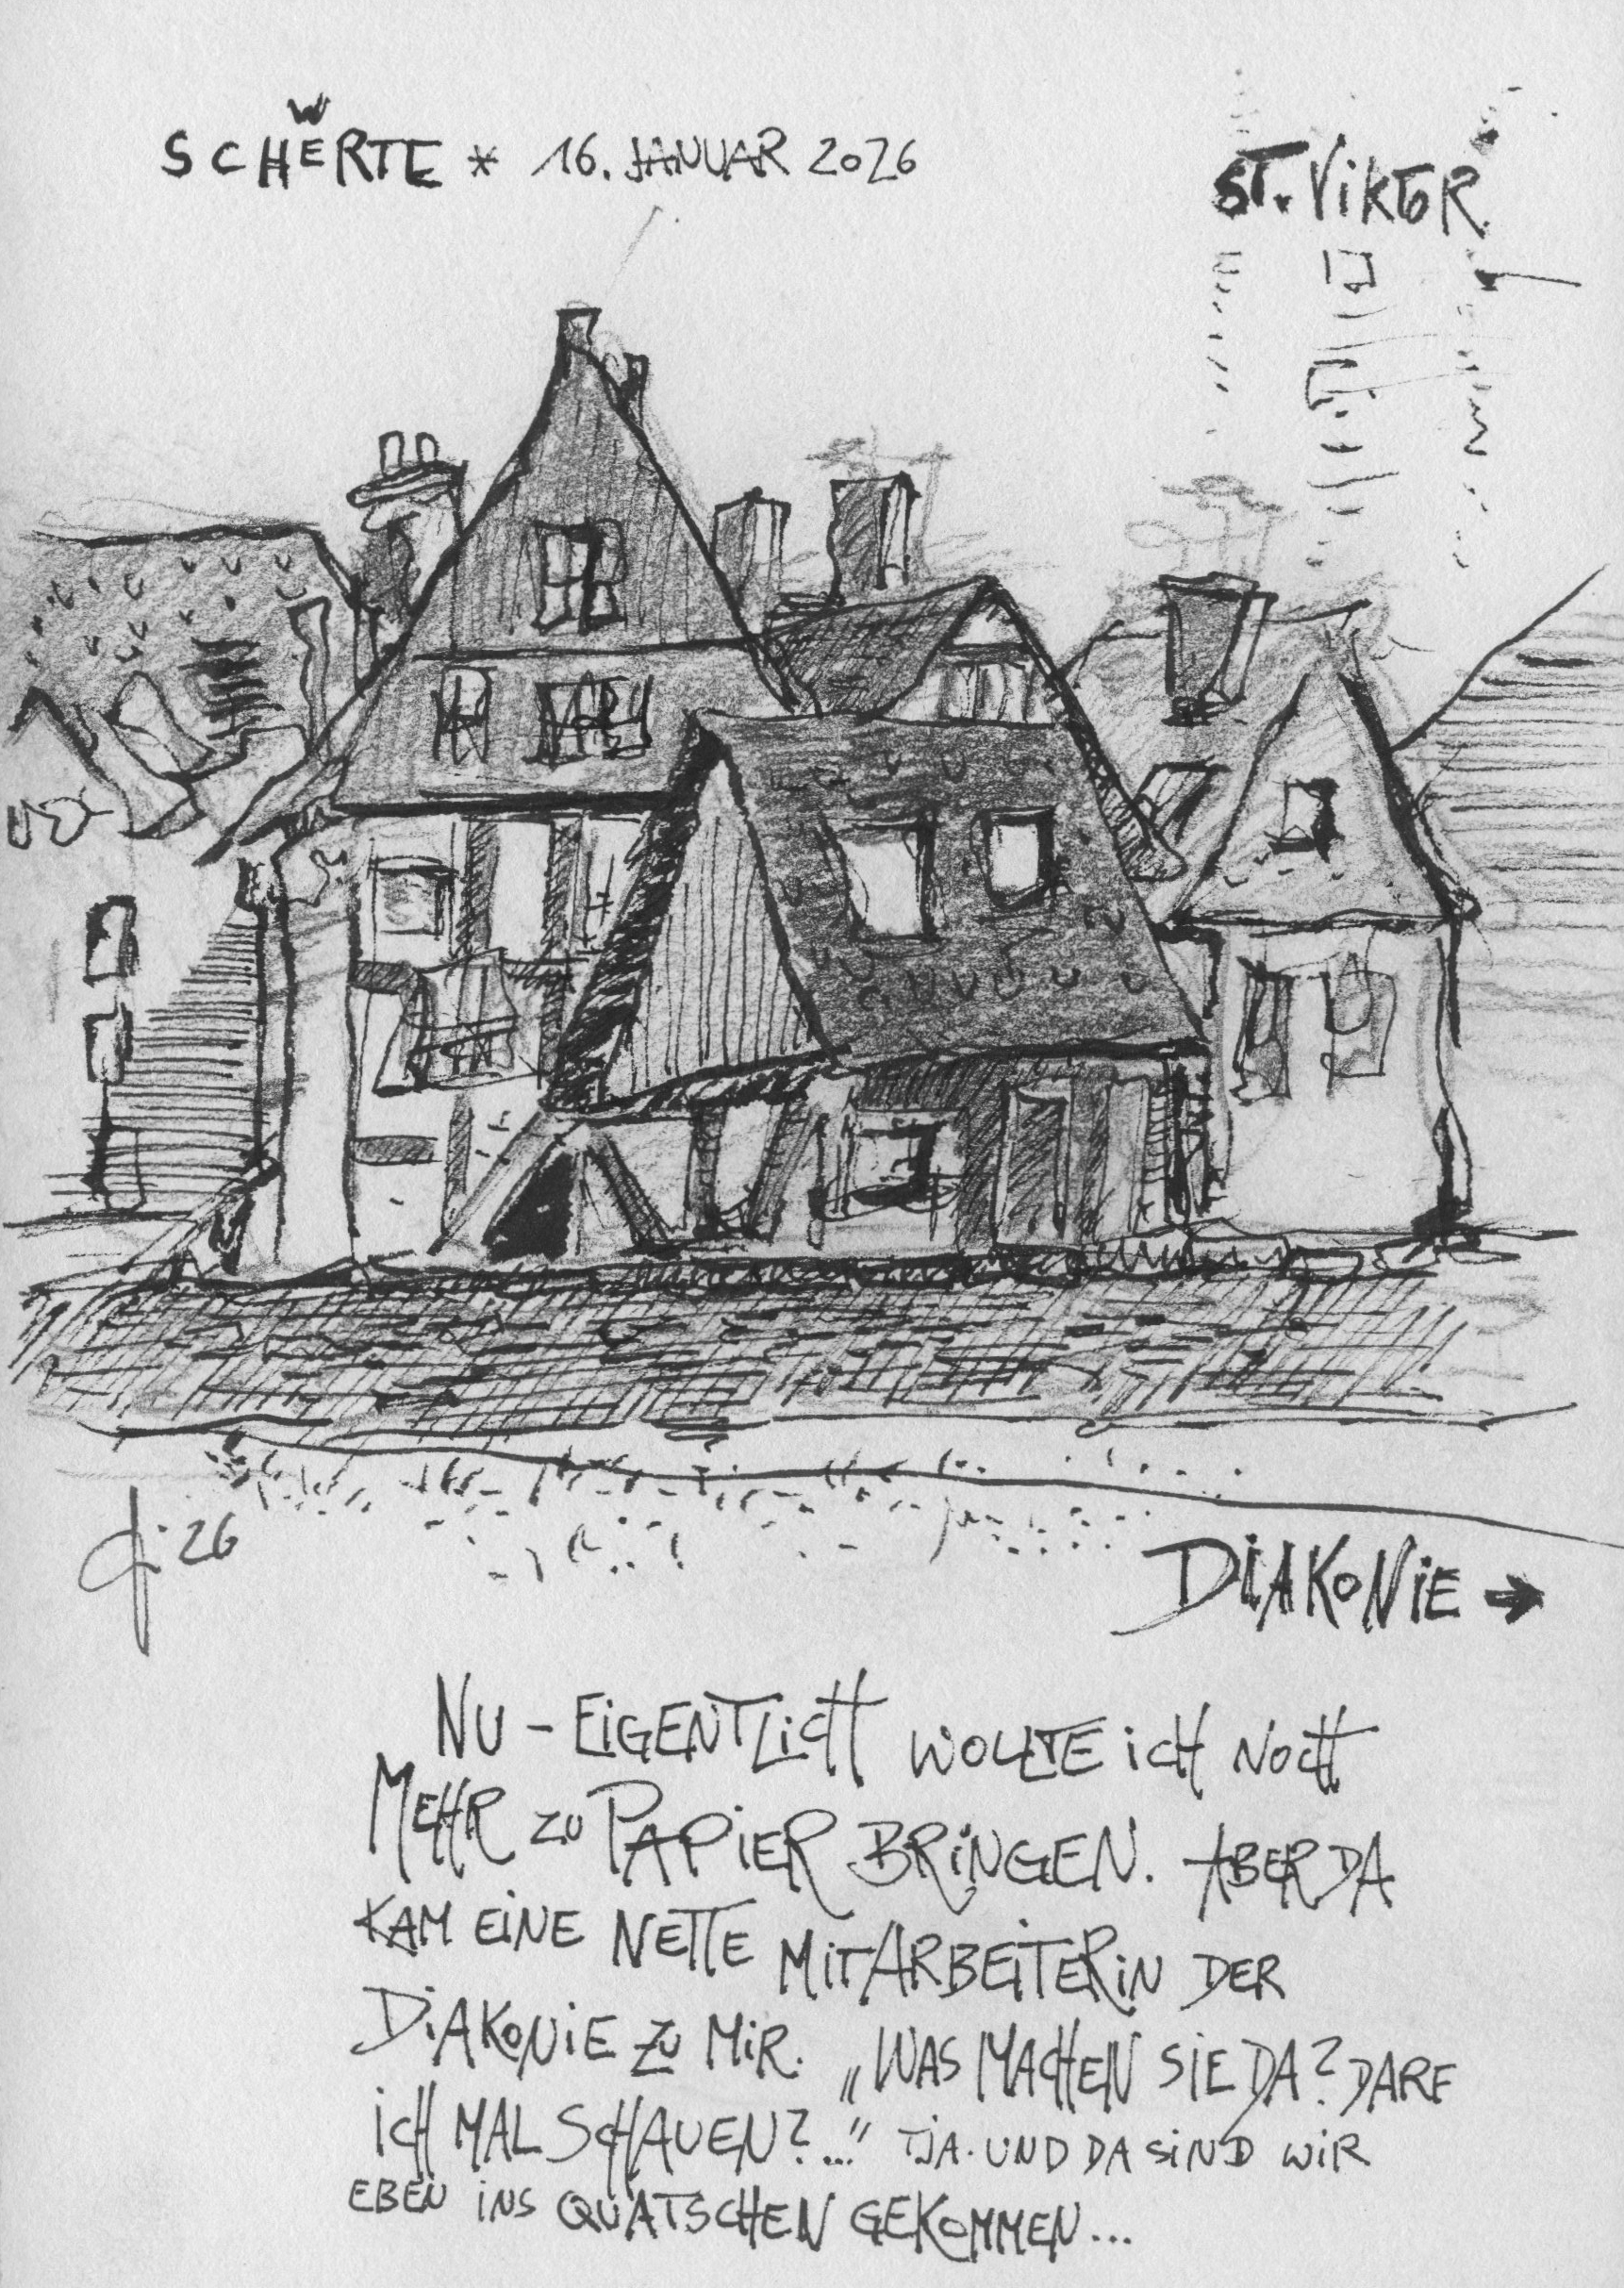 SCHWERTE * 16. JANUAR 2026
ST. ViKTOR
26
DiAKONiE →
NU – EiGENTLiCH WOLLTE iCH NOCH
MEHR ZU PAPiER BRiNGEN. ABER DA
KAM EiNE NETTE MiTARBEiTERiN DER
DiAKONiE ZU MiR. „WAS MACHEN SiE DA? DARF
iCH MAL SCHAUEN?..." TJA. UND DA SiND WiR
EBEN iNS QUATSCHEN GEKOMMEN...